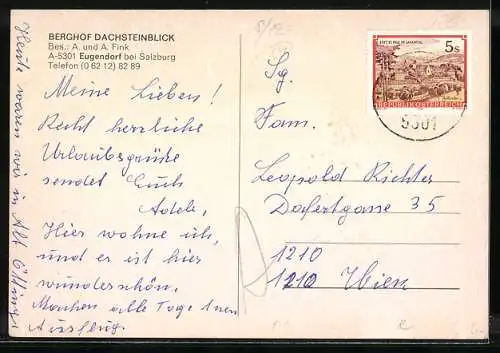 BERGHOF DACHSTEINBLICK
Bes.: A. und A. Fink
A-5301 Eugendorf bei Salzburg
Telefon (0 62 12) 82 89
Meine Lieben!
Recht herzliche
Urlaubsgrüße
sendet Euch
Adele,
Hier wohne ich,
und es ist hier
wunderschön.
Machen alle Tage 1nen
Ausflug.
Heute waren wir in Alt
5 S
REPUBLIK ÖSTERREICH
5301
Fam.
Leopold Richter
35
1210
1210 Wien